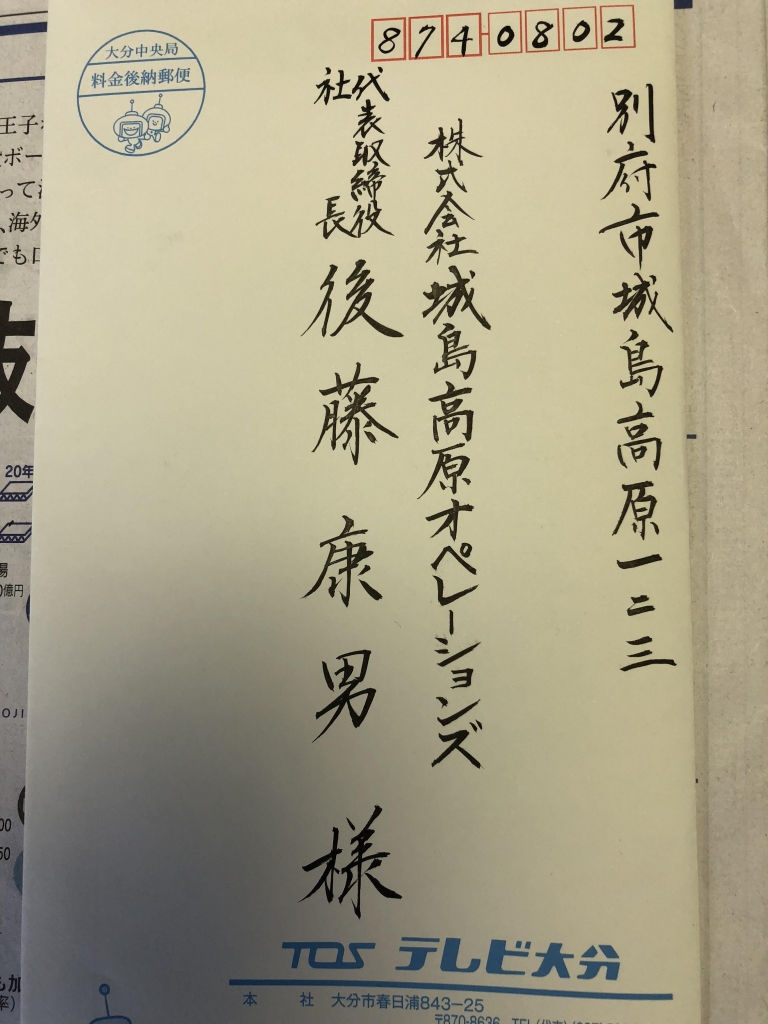 8740802
別府市城島高原一二三
株式会社城島高原オペレーションズ
代表取締役
社長
後藤康男様
大分中央局
料金後納郵便
TOS テレビ大分
本社 大分市春日浦843-25
〒870-8636
王子
ボー
って
、海外
でも口
20年
0億円
OJI
00
50